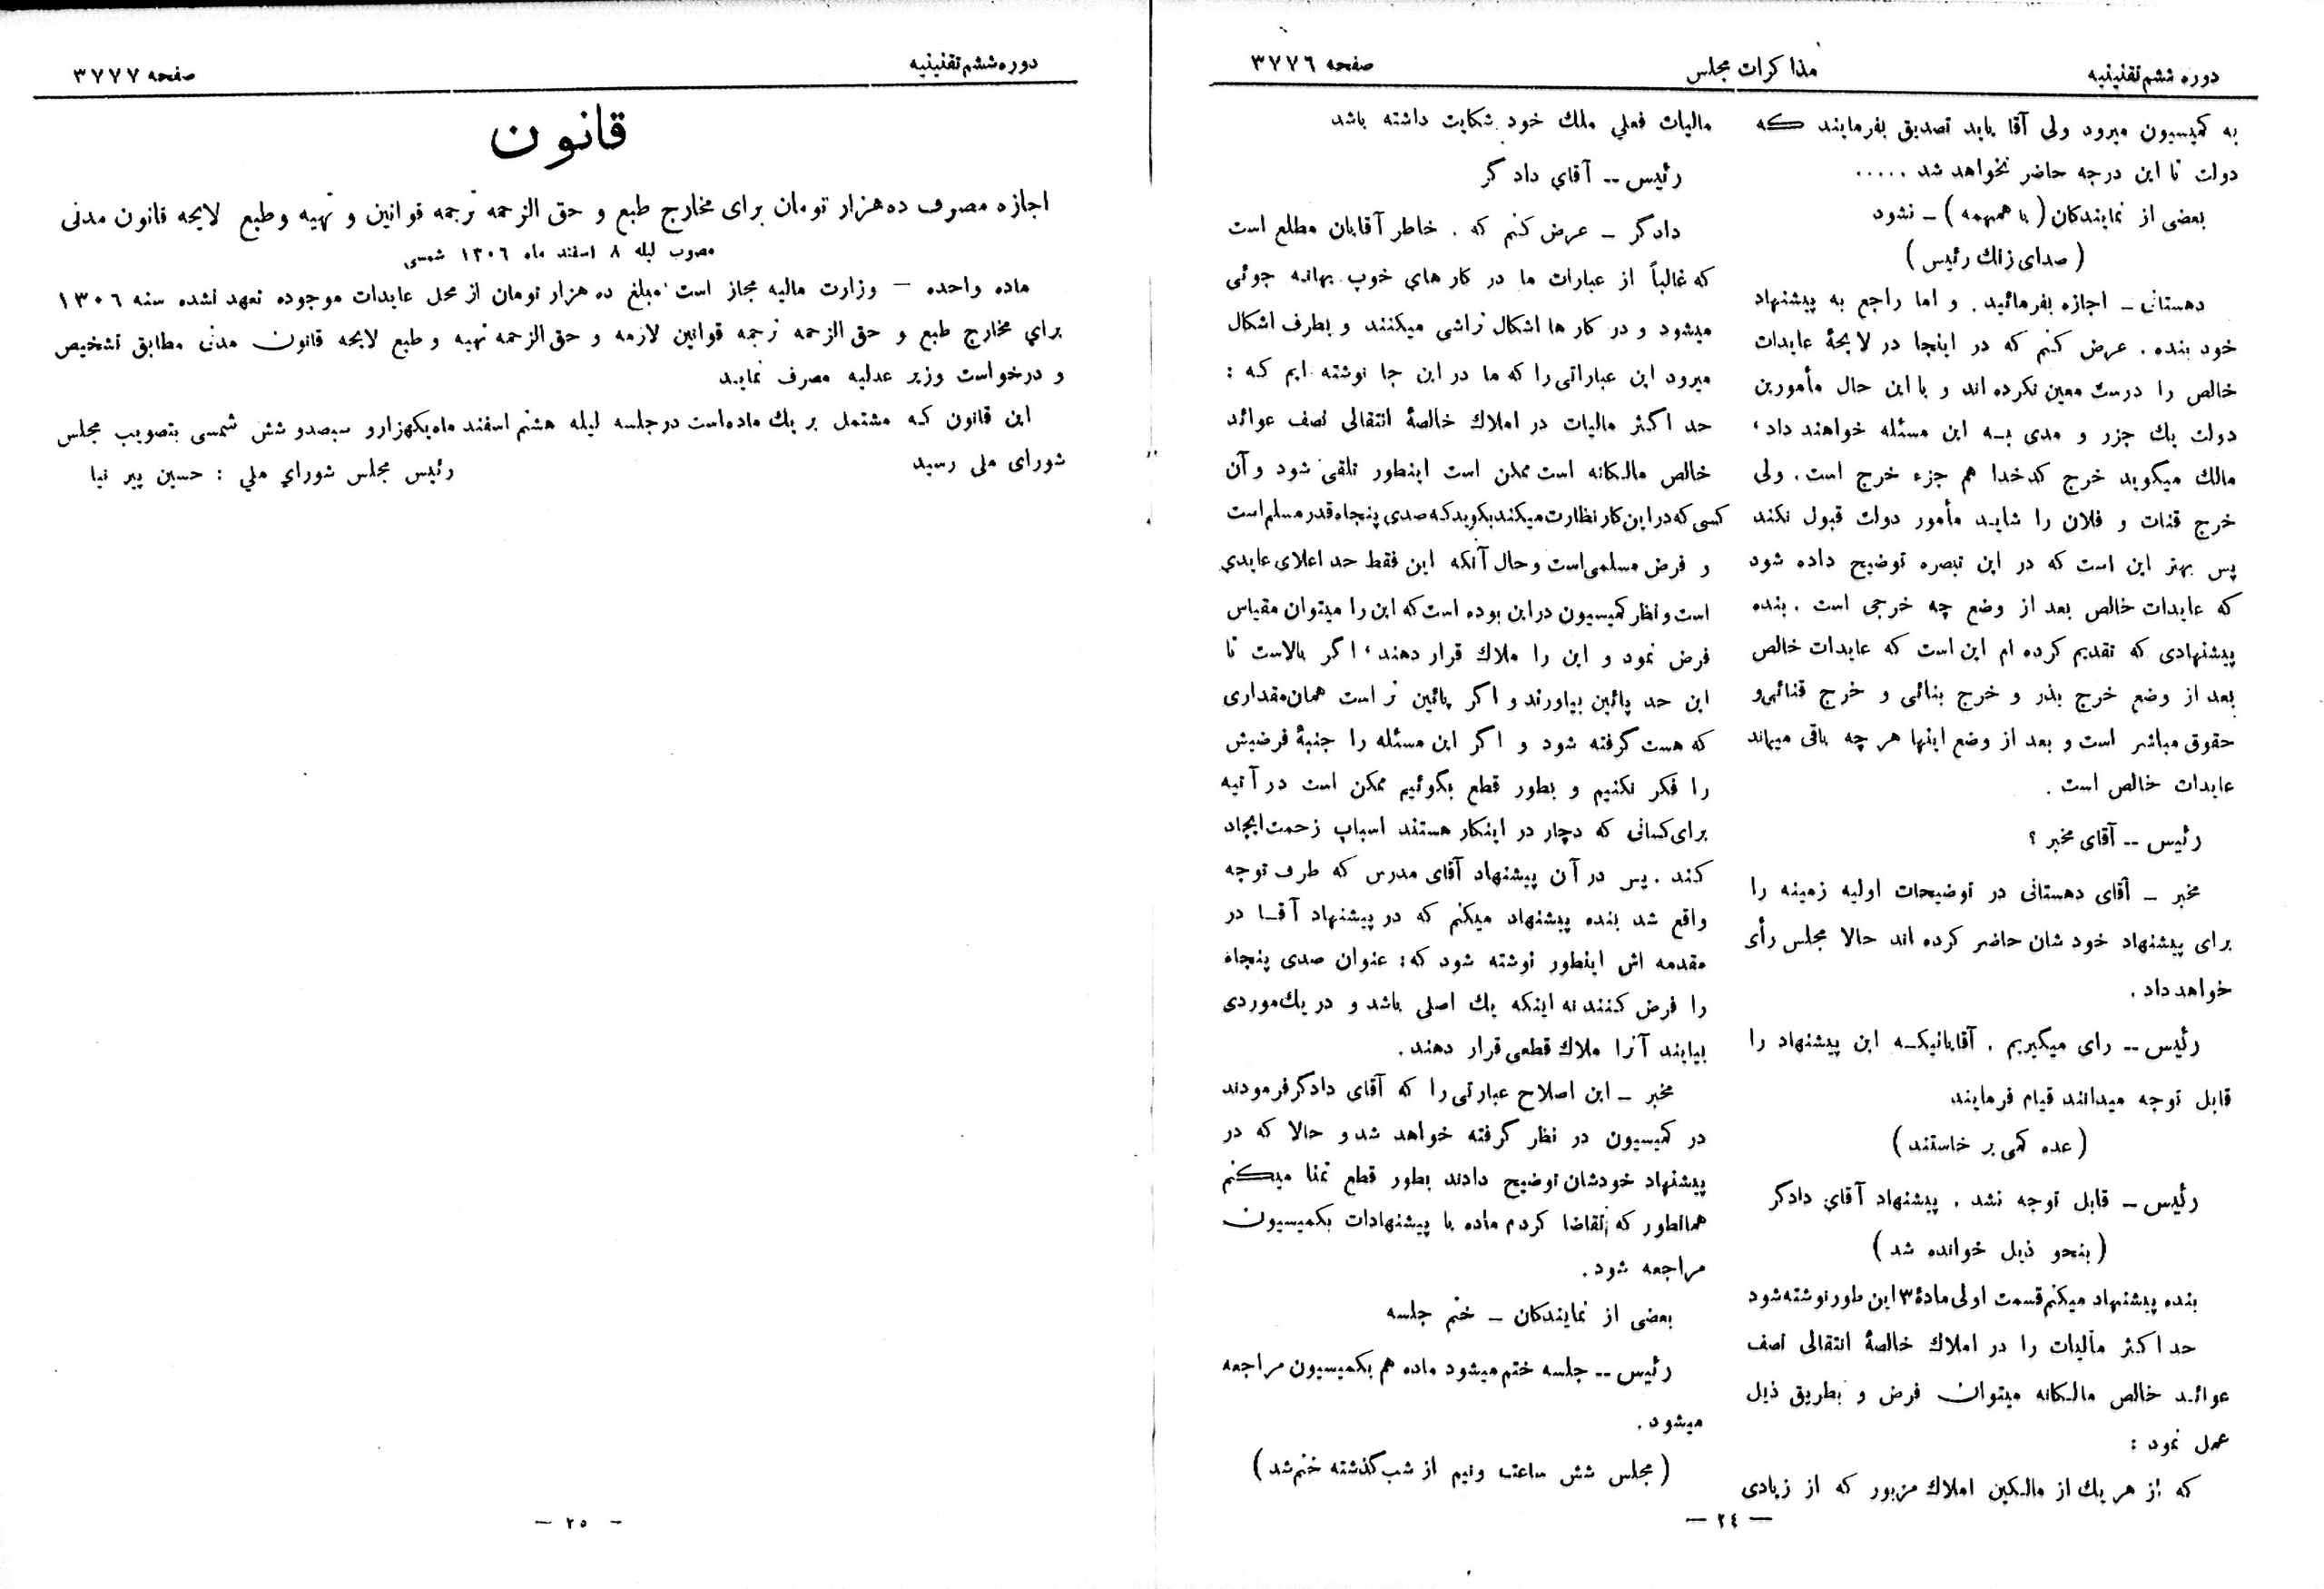 دوره ششم تقنینیه
مذاکرات مجلس
صفحه ۳۷۷۶
به کمیسیون میرود ولی آقا باید تصدیق بفرمایند که
دولت تا این درجه حاضر نخواهد شد .....
بعضی از نمایندکان (با همهمه) ـ نشود
(صدای زنك رئیس)
دهستانی ـ اجازه بفرمائید . و اما راجع به پیشنهاد
خود بنده . عرض کنم که در اینجا در لایحهٔ عایدات
خالص را درست معین نکرده اند و با این حال مأمورین
دولت یك جزر و مدی به این مسئله خواهند داد ،
مالك میگوید خرج کدخدا هم جزء خرج است . ولی
خرج قنات و فلان را شاید مأمور دولت قبول نکند
پس بهتر این است که در این تبصره توضیح داده شود
که عایدات خالص بعد از وضع چه خرجی است . بنده
پیشنهادی که تقدیم کرده ام این است که عایدات خالص
بعد از وضع خرج بذر و خرج بنائی و خرج قنائی و
حقوق مباشر است و بعد از وضع اینها هر چه باقی میماند
عایدات خالص است .
رئیس -- آقای مخبر ؟
مخبر ـ آقای دهستانی در توضیحات اولیه زمینه را
برای پیشنهاد خود شان حاضر کرده اند حالا مجلس رأی
خواهد داد .
رئیس -- رای میگیریم . آقایانیکه این پیشنهاد را
قابل توجه میدانند قیام فرمایند
(عده کمی بر خاستند)
رئیس ـ قابل توجه نشد . پیشنهاد آقاي دادکر
(بنحو ذیل خوانده شد)
بنده پیشنهاد میکنم قسمت اولی مادهٔ ۳ این طور نوشته شود
حد اکثر مالیات را در املاك خالصهٔ انتقالی نصف
عوائد خالص مالکانه میتوان فرض و بطریق ذیل
عمل نمود :
که از هر یك از مالکین املاك مزبور که از زیادی
ـ ٢٤ ـ
مالیات فعلي ملك خود شکایت داشته باشد
رئیس -- آقاي داد کر
دادکر ـ عرض کنم که . خاطر آقایان مطلع است
که غالباً از عبارات ما در کار هاي خوب بهانه جوئی
میشود و در کار ها اشکال تراشی میکنند و بطرف اشکال
میرود این عباراتی را که ما در این جا نوشته ایم که :
حد اکثر مالیات در املاك خالصهٔ انتقالی نصف عوائد
خالص مالکانه است ممکن است اینطور تلقی شود و آن
کسی که در این کار نظارت میکند بکوید که صدی پنجاه قدر مسلم است
و فرض مسلمی است و حال آنکه این فقط حد اعلای عایدي
است و نظر کمیسیون در این بوده است که این را میتوان مقیاس
فرض نمود و این را ملاك قرار دهند ، اگر بالاست تا
این حد پائین بیاورند و اکر پائین تر است همان مقداری
که هست کرفته شود و اکر این مسئله را جنبهٔ فرضیش
را فکر نکنیم و بطور قطع بگوئیم ممکن است در آتیه
برای کسانی که دچار در اینکار هستند اسباب زحمت ایجاد
کند . پس در آن پیشنهاد آقای مدرس که طرف توجه
واقع شد بنده پیشنهاد میکنم که در پیشنهاد آقا در
مقدمه اش اینطور نوشته شود که : عنوان صدی پنجاه
را فرض کنند نه اینکه یك اصلی باشد و در یك موردی
بیایند آنرا ملاك قطعی قرار دهند .
مخبر ـ این اصلاح عبارتی را که آقای دادکر فرمودند
در کمیسیون در نظر کرفته خواهد شد و حالا که در
پیشنهاد خودشان توضیح دادند بطور قطع تمنا میکنم
همانطور که تقاضا کردم ماده با پیشنهادات بکمیسیون
مراجعه شود .
بعضی از نمایندکان ـ ختم جلسه
رئیس -- جلسه ختم میشود ماده هم بکمیسیون مراجعه
میشود .
(مجلس شش ساعت ونیم از شب کذشته ختم شد)
دوره ششم تقنینیه
صفحه ۳۷۷۷
قانون
اجازه مصرف ده هزار تومان برای مخارج طبع و حق الزحمه ترجمه قوانین و تهیه و طبع لایحه قانون مدنی
مصوب لیله ۸ اسفند ماه ۱۳۰٦ شمسی
ماده واحده – وزارت مالیه مجاز است مبلغ ده هزار تومان از محل عایدات موجوده تعهد نشده سنه ۱۳۰٦
براي مخارج طبع و حق الزحمه ترجمه قوانین لازمه و حق الزحمه تهیه و طبع لایحه قانون مدنی مطابق تشخیص
و درخواست وزیر عدلیه مصرف نماید
این قانون که مشتمل بر یك ماده است در جلسه لیله هشتم اسفند ماه یکهزار و سیصد و شش شمسی بتصویب مجلس
شورای ملی رسید
رئیس مجلس شوراي ملي : حسین پیر نیا
ـ ٢٥ ـ